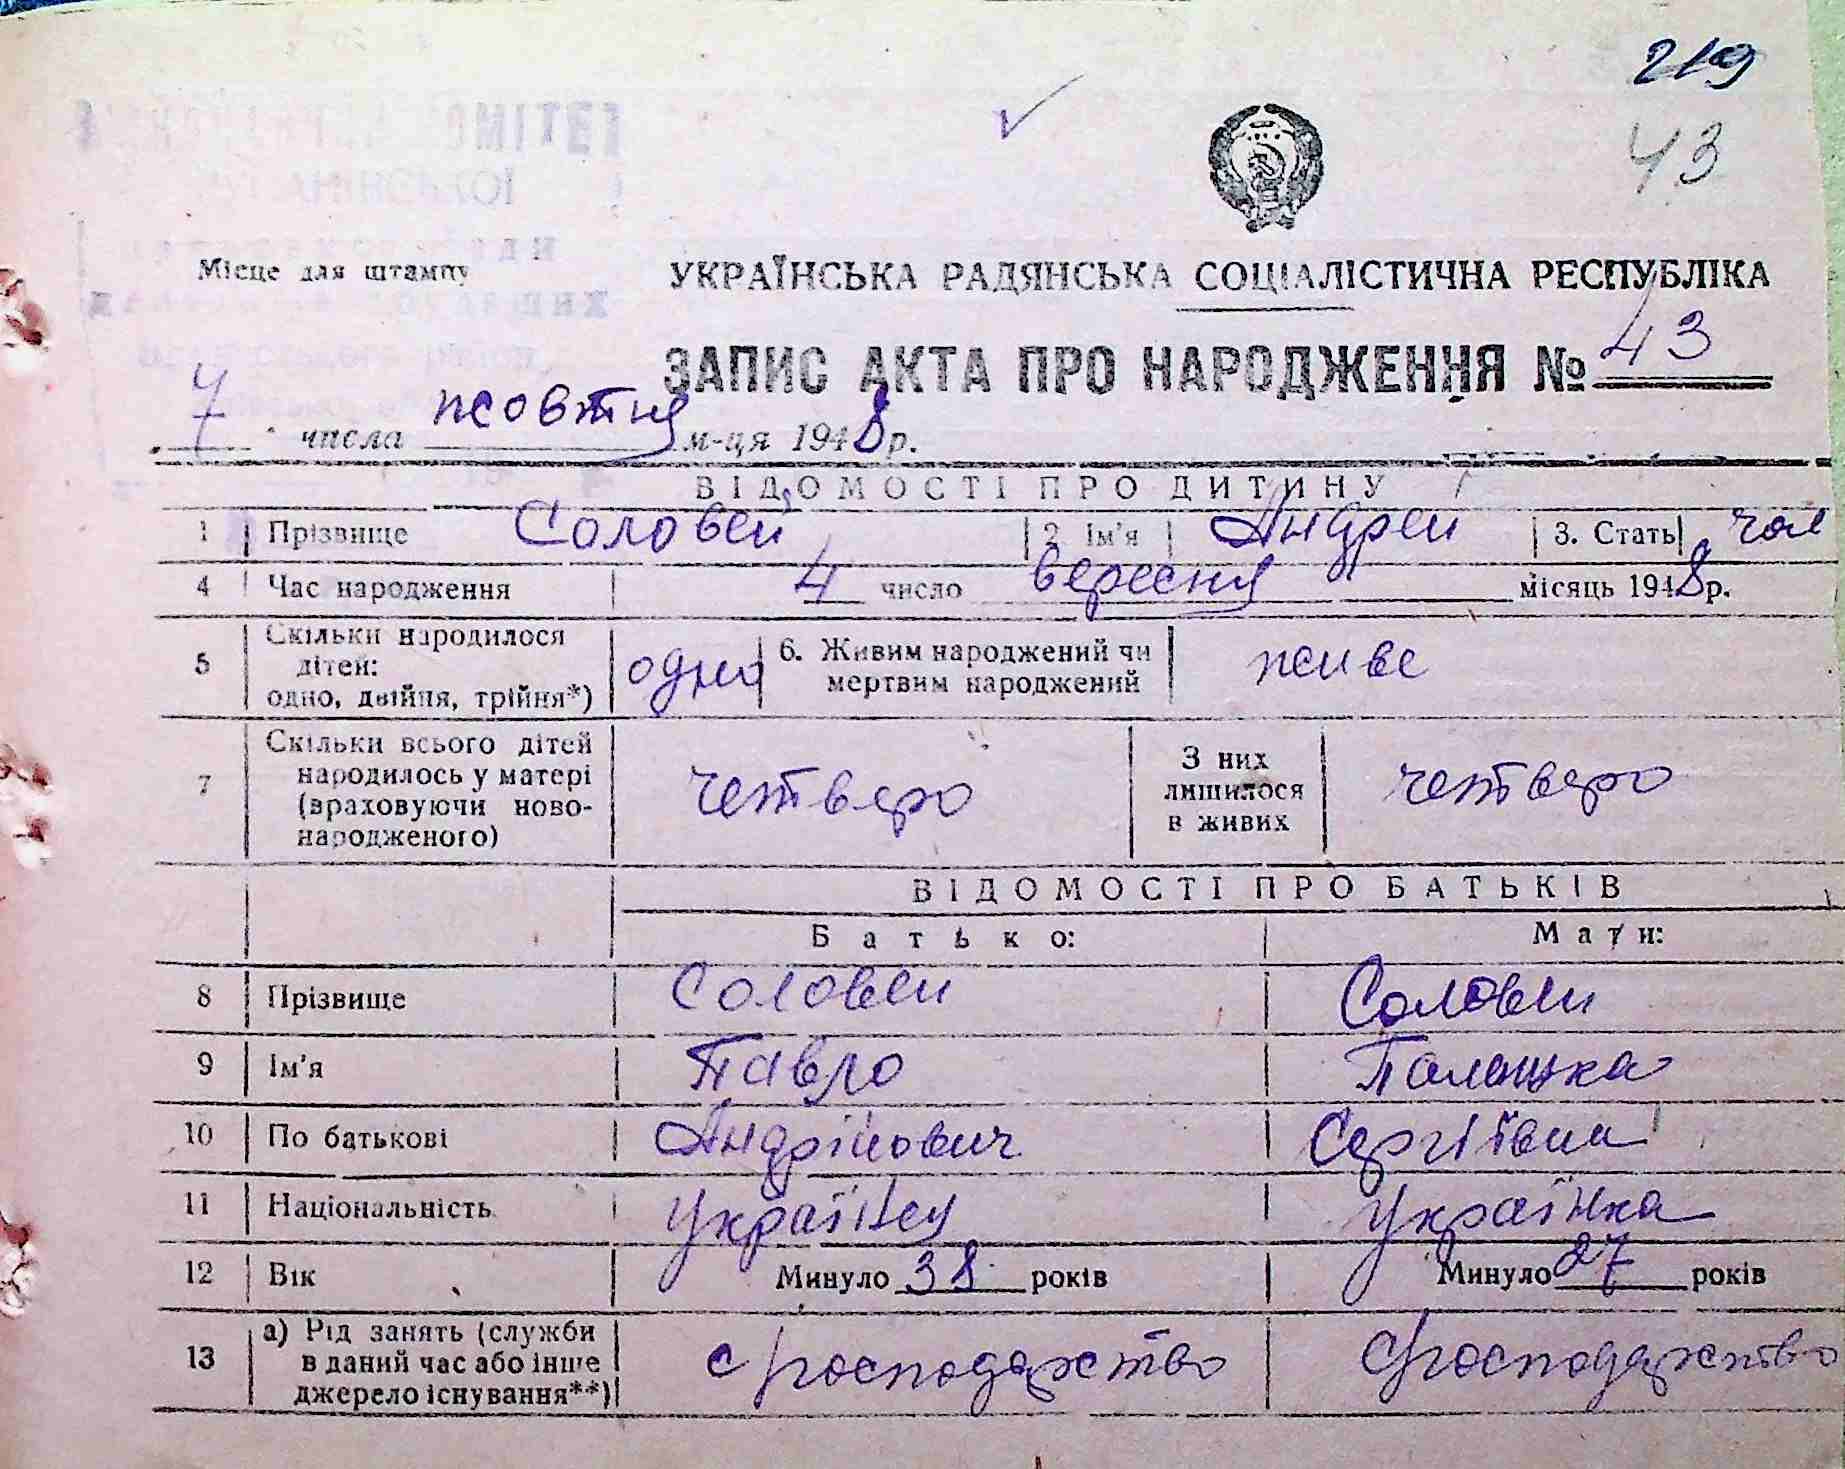 219
43
ОМІТЕТ
Місце для штампу
УКРАЇНСЬКА РАДЯНСЬКА СОЦІАЛІСТИЧНА РЕСПУБЛІКА
ЗАПИС АКТА ПРО НАРОДЖЕННЯ № 43
7 числа жовтня м-ця 1948 р.
ВІДОМОСТІ ПРО ДИТИНУ
1 Прізвище Соловей 2 Ім'я Андрей 3. Стать чол
4 Час народження 4 число вересня місяць 1948 р.
5 Скільки народилося дітей: одно, двійня, трійня*) одно 6. Живим народжений чи мертвим народжений живе
7 Скільки всього дітей народилось у матері (враховуючи ново-народженого) четверо З них лишилося в живих четверо
ВІДОМОСТІ ПРО БАТЬКІВ
Батько: Мати:
8 Прізвище Соловей Соловей
9 Ім'я Павло Палашка
10 По батькові Андрійович Сергіївна
11 Національність Українец Українка
12 Вік Минуло 38 років Минуло 27 років
13 а) Рід занять (служби в даний час або інше джерело існування**) с/господарство с/господарство